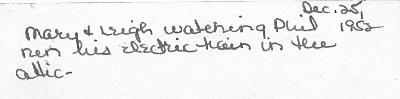 Dec. 25,
Mary & Leigh watching Phil 1952
run his electric train in the
attic-